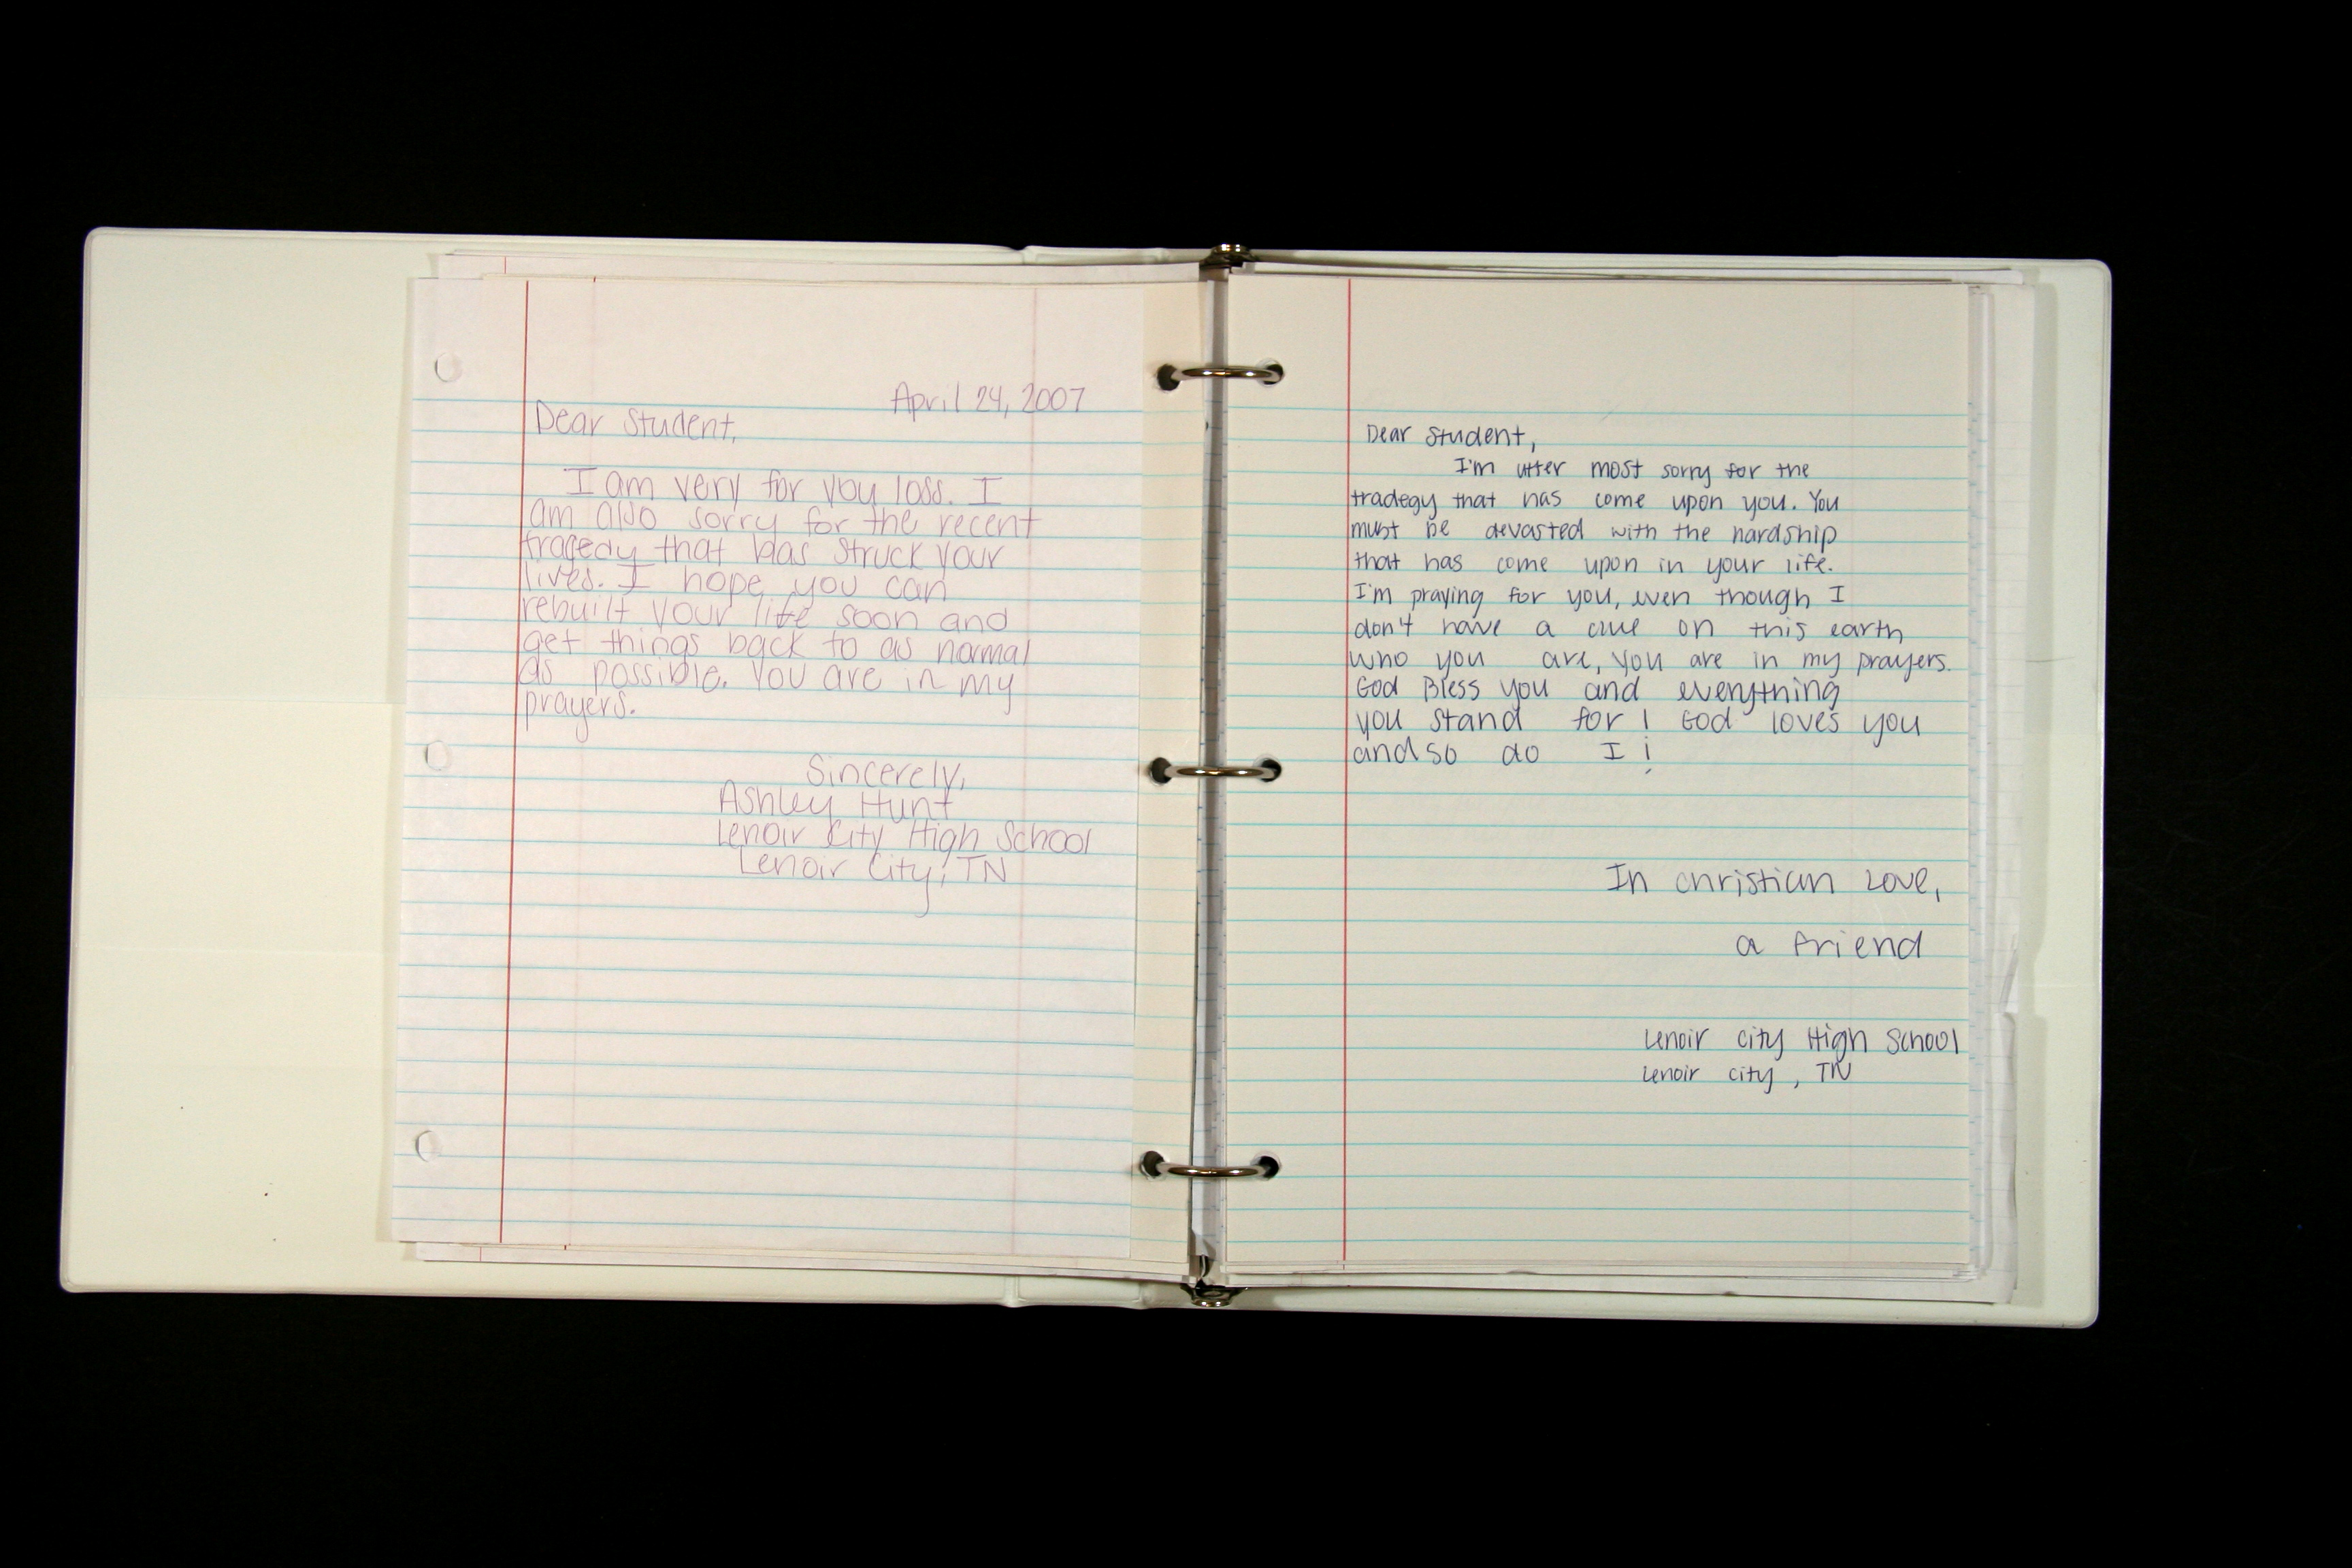 April 24, 2007
Dear Student,
I am very for you loss. I
am also sorry for the recent
tragedy that has struck your
lives. I hope you can
rebuilt your life soon and
get things back to as normal
as possible. You are in my
prayers.
Sincerely,
Ashley Hunt
Lenoir City High School
Lenoir City, TN
Dear Student,
I'm utter most sorry for the
tradegy that has come upon you. You
must be devasted with the hardship
that has come upon in your life.
I'm praying for you, even though I
don't have a clue on this earth
who you are, you are in my prayers.
God Bless you and everything
you stand for! God loves you
and so do I!
In christian Love,
a friend
Lenoir City High School
Lenoir City, TN